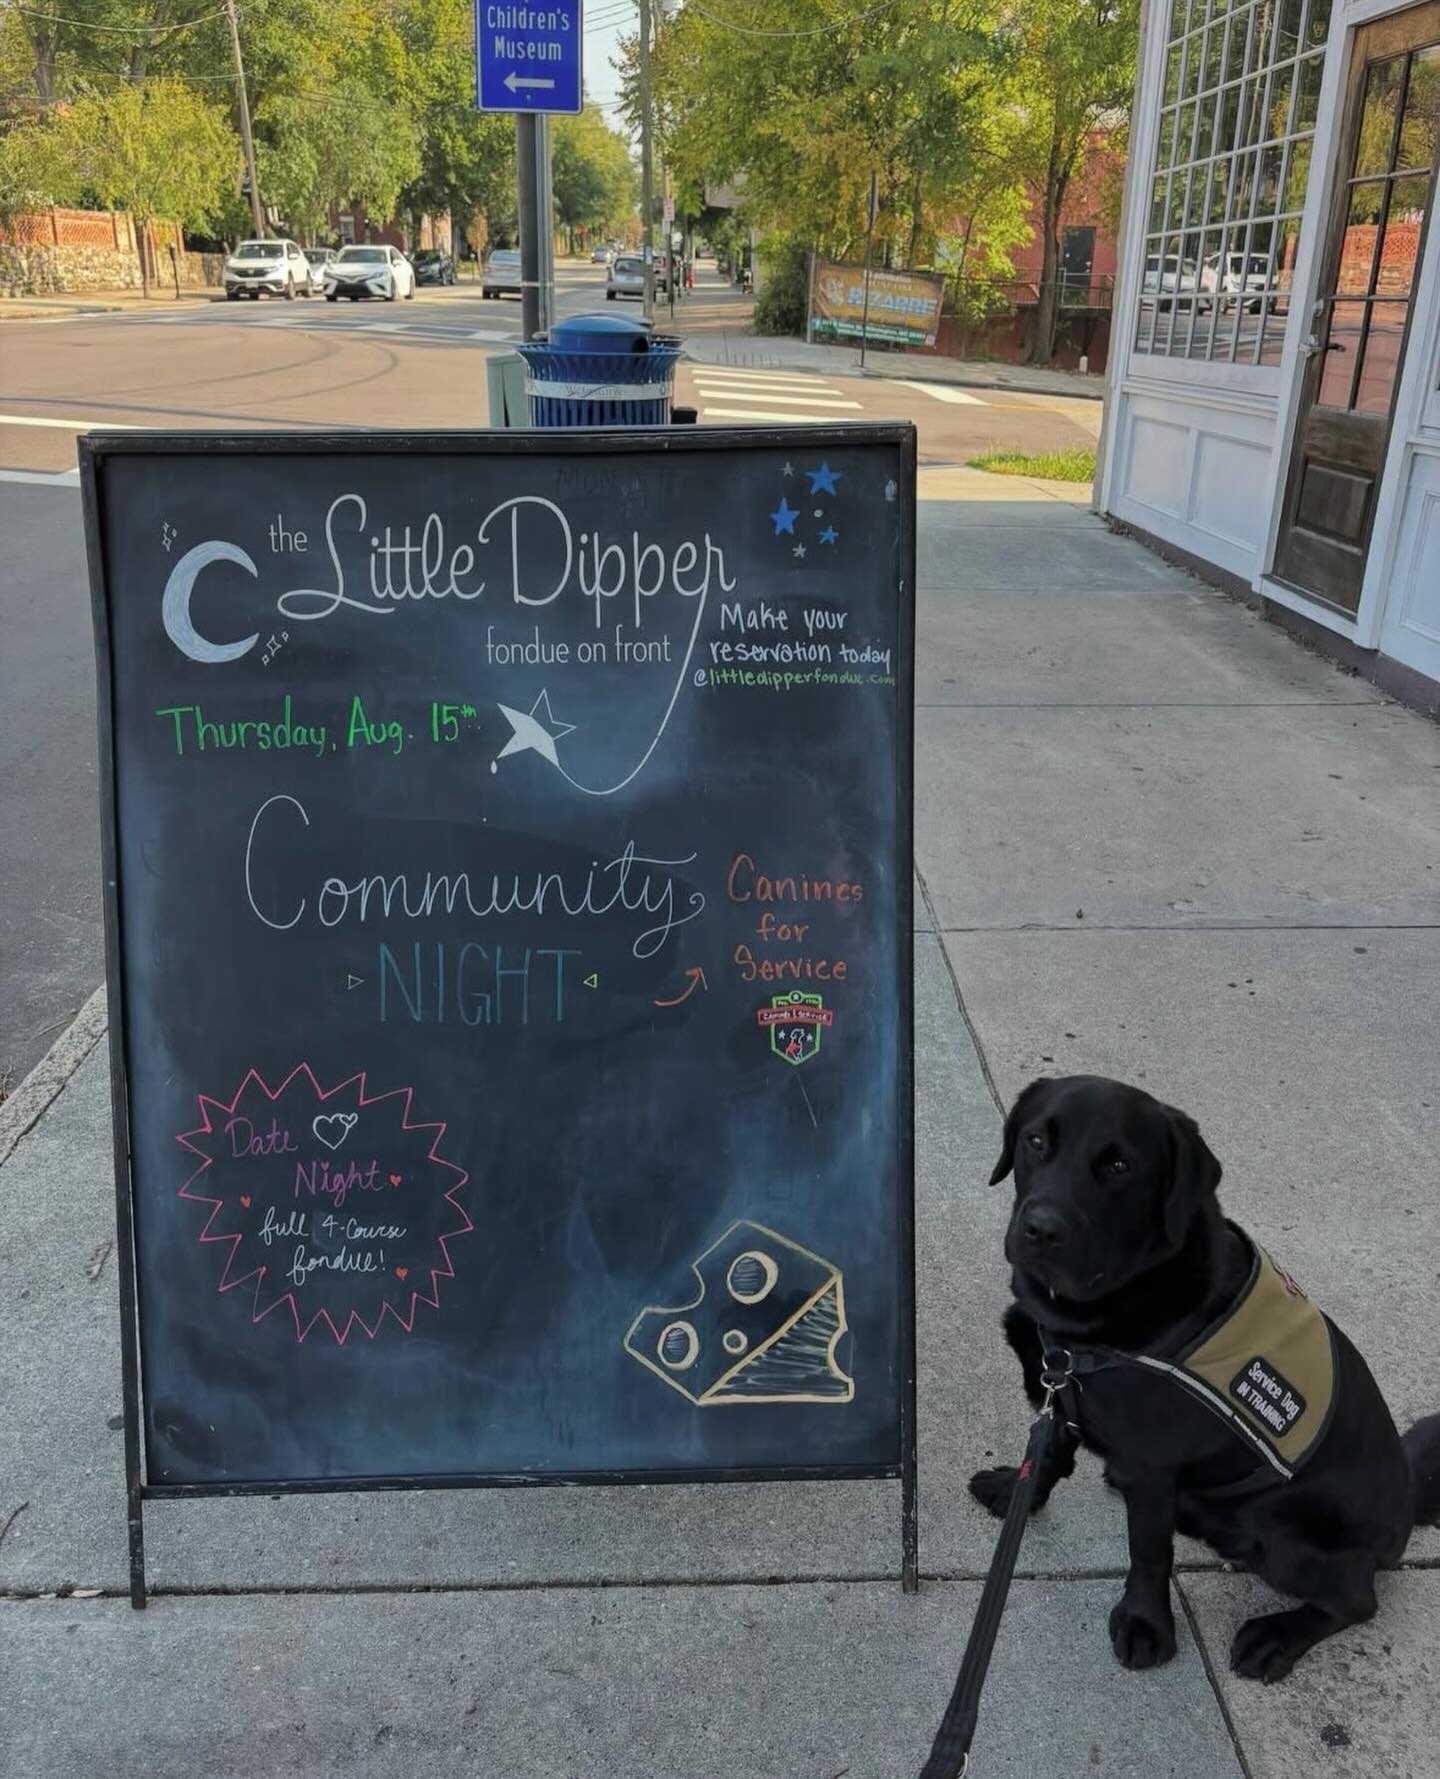 Children's
Museum
BIZARRE
the Little Dipper
fondue on front
Make your
reservation today
@littledipperfondue.com
Thursday, Aug. 15th
Community
NIGHT
Canines
for
Service
Date
Night
full 4-course
fondue!
Service Dog
IN TRAINING